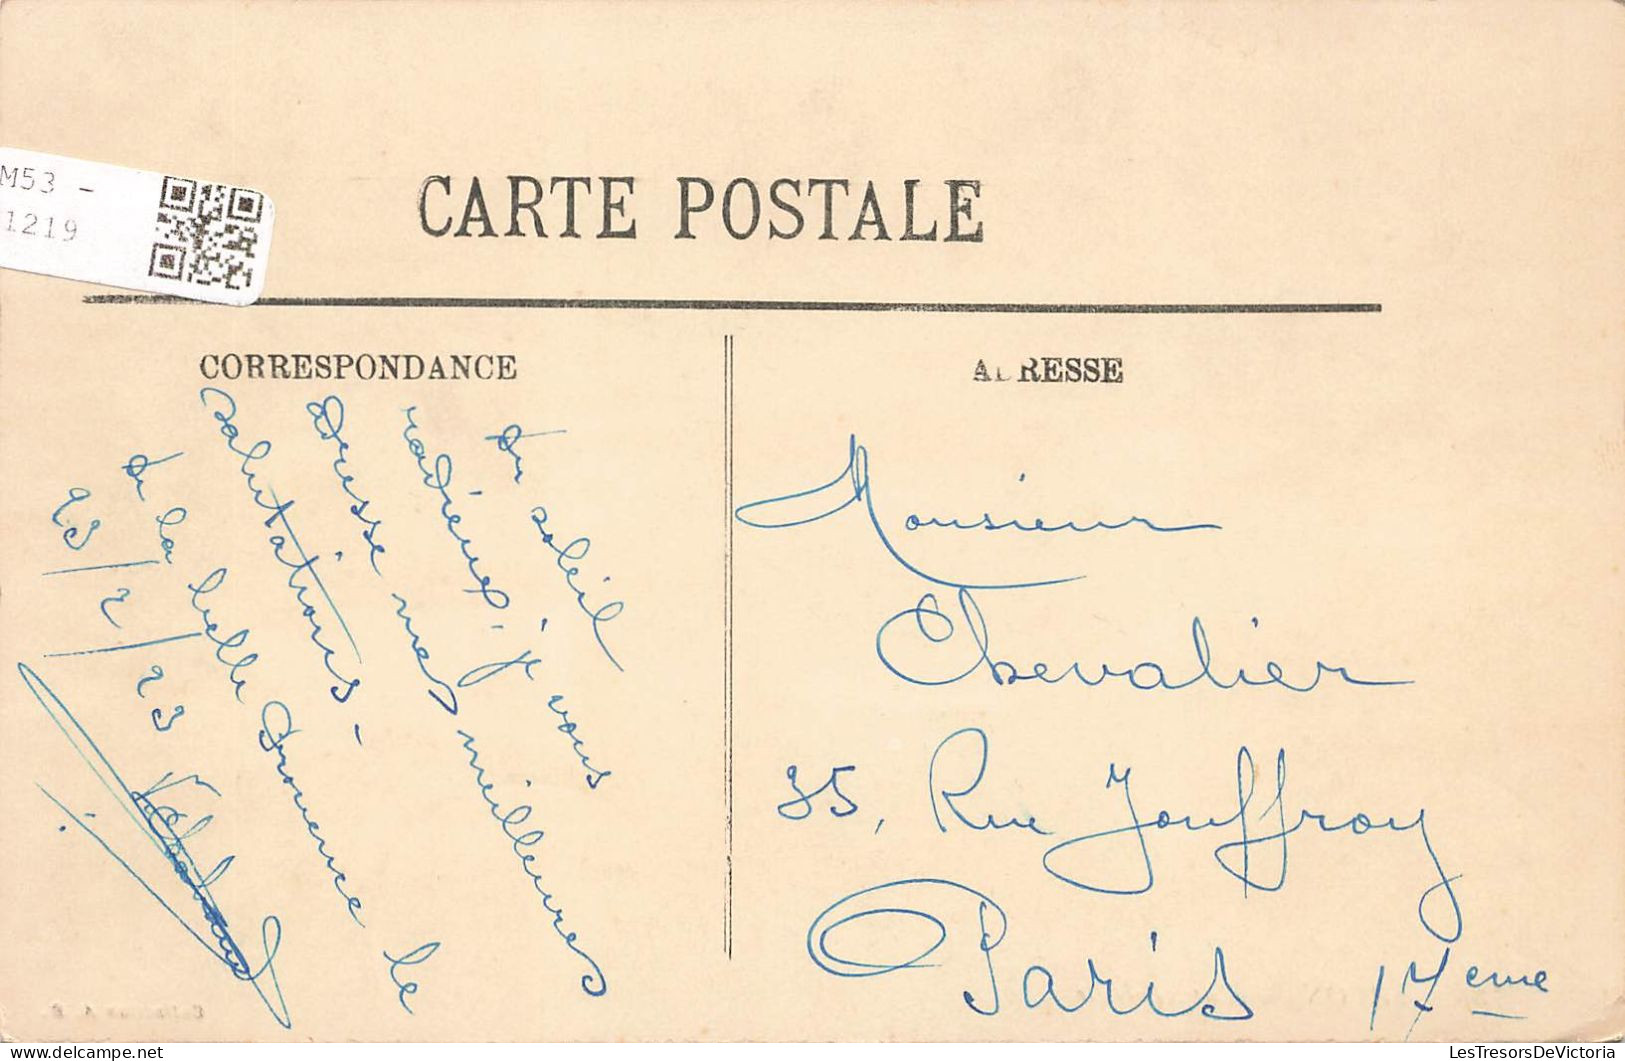 M53 -
1219
CARTE POSTALE
CORRESPONDANCE
ADRESSE
Du soleil
radieux, je vous
adresse mes meilleures
salutations -
De la belle Provence le
23/2/23
Monsieur
Chevalier
35, Rue Jouffroy
Paris 17eme
LesTresorsDeVictoria